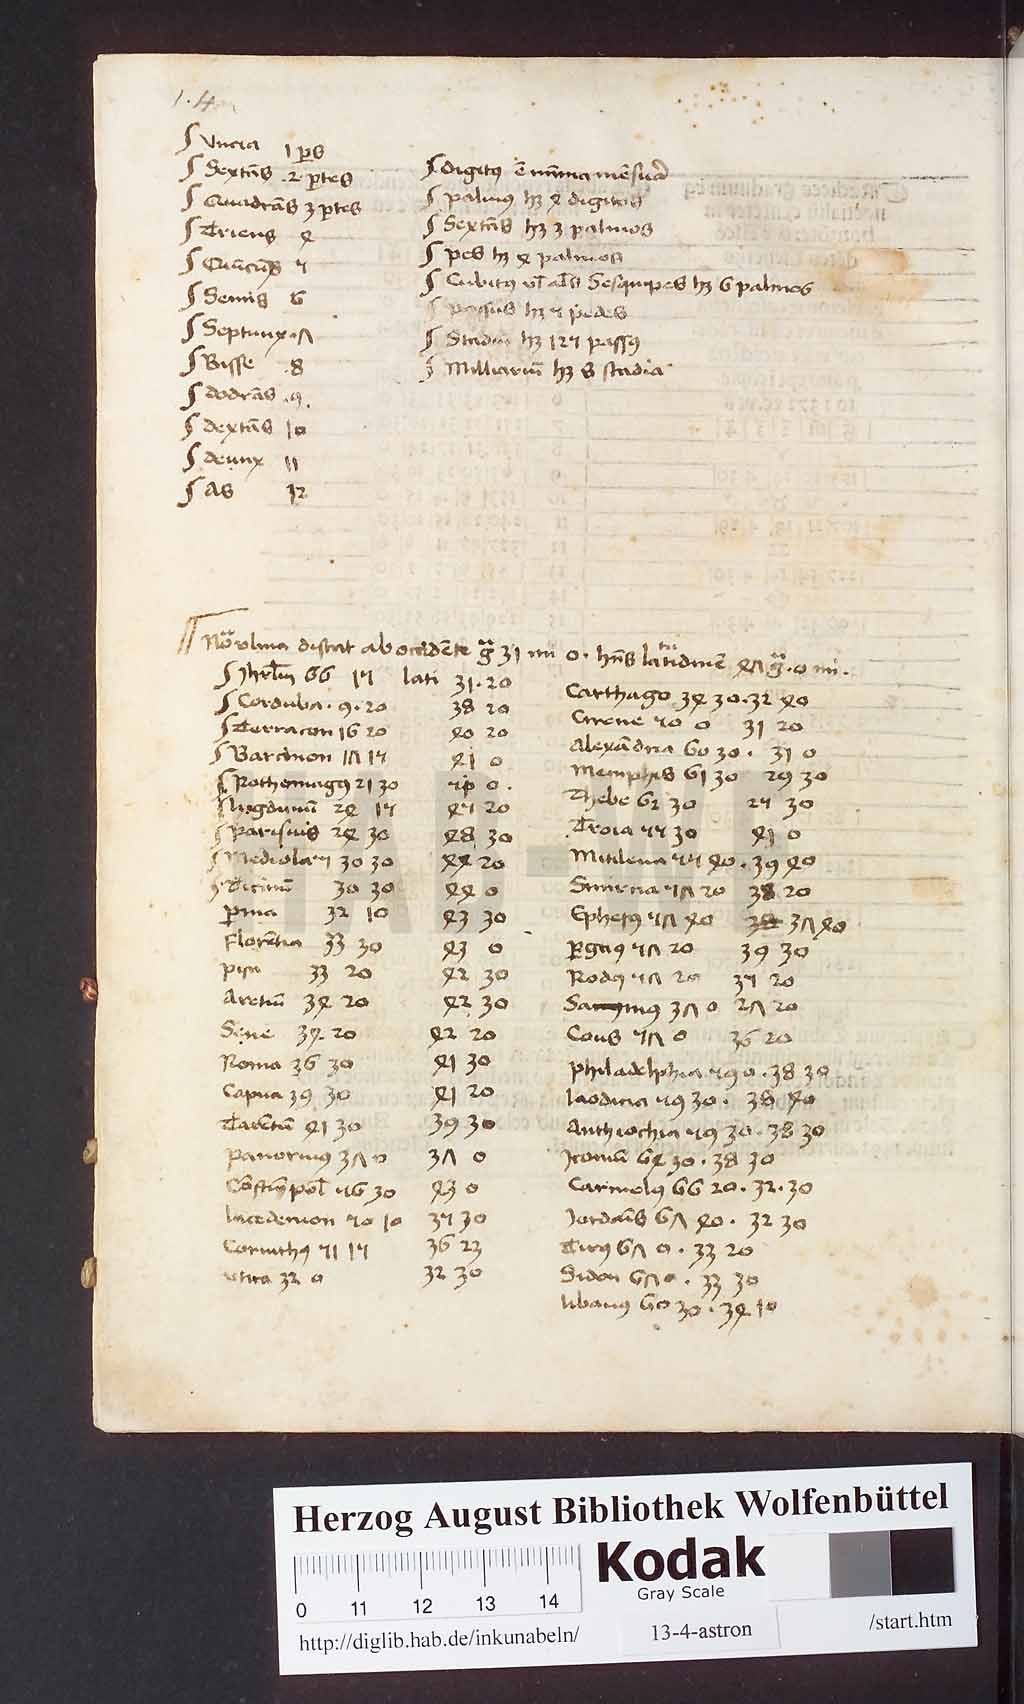 1.4
Uncia 1 ps
Sextās .2 ptes
Quadrās 3 ptes
Triens 4
5
Semis 6
Septunx 7
Bisse .8
dodrās .9.
dextās 10
deunx 11
As 12
digitꝰ ē mīma mēsura
palmꝰ hꝫ 4 digitos
Sextās hꝫ 3 palmos
pes hꝫ 4 palmos
Cubitꝰ vl Sesquipes hꝫ 6 palmos
passus hꝫ 5 pedes
Stadiū hꝫ 125 passꝰ
Milliariū hꝫ 8 stadia
distat ab occidēte g 31 mi 0. hn̄s latidinē 47 g. 0 mi.
Jhrlm 66 15 lati 31.20
Corduba. 9.20 38 20
Terracon 16 20 40 20
Barcinon 17 15 41 0
Rothomagꝰ 21 30 50 0.
24 15 45 20
Parisius 24 30 48 30
Mediola 30 30 44 20
Ticinū 30 30 44 0
pma 32 10 43 30
Florētia 33 30 43 0
Pisa 33 20 42 30
Aretiū 34 20 42 30
Sene 34.20 42 20
Roma 36 30 41 30
Capua 39 30 41 20
Tarētū 41 30 39 30
Panormꝰ 37 0 37 0
Cōstīpol 56 30 43 0
lacedemon 50 10 35 30
Corinthꝰ 51 15 36 23
utica 32 0 32 30
Carthago 34 30.32 40
Cirene 50 0 31 20
Alexādria 60 30. 31 0
Memphis 61 30 29 30
Thebe 62 30 25 30
Troia 55 30 41 0
Mitilena 55 40. 39 40
Smirna 57 20 38 20
Ephesꝰ 57 40 38 37 40
pgaꝰ 57 20 39 30
Rodꝰ 57 20 35 20
37 0 27 20
Cous 57 0 36 20
Philadelphia 59 0. 38 30
laodicia 59 30. 38 40
Anthiochia 59 30. 38 30
Iconiū 64 30. 38 30
Carmelꝰ 66 20. 32.30
Jordāis 67 40. 32 30
Tirꝰ 67 0. 33 20
Sidon 67 0. 33 30
libanꝰ 60 30. 34 10
HAB-WI
Herzog August Bibliothek Wolfenbüttel
0 11 12 13 14
Kodak
Gray Scale
http://diglib.hab.de/inkunabeln/
13-4-astron
/start.htm